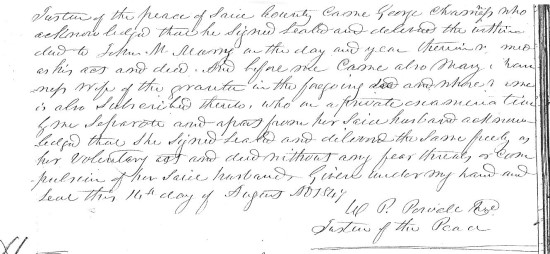 Justice of the peace of Said County Came George Chamness who
acknowledged that he Signed Sealed and delivered the within
deed to John M. Murry on the day and year therein named
as his act and deed. And before me Came also Mary Cham
ness wife of the grantor in the foregoing deed and whose name
is also Subscribed thereto, who on a private examination
by me Separate and apart from her Said husband acknow
ledged that She Signed Seald and dilivered the Same freely as
her Voluntary act and deed without any fear threats or com
pulsion of her Said husband Given under my hand and
Seal this 14th day of August AD 1847
W P.
Justice of the Peace